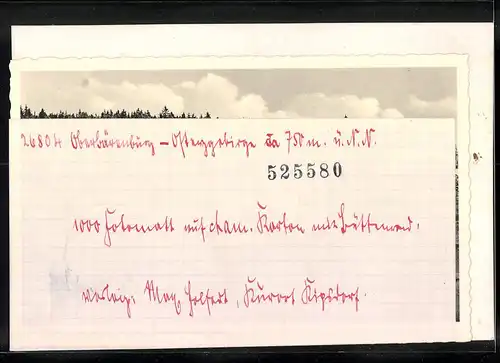 26804 Oberbärenburg - Osterzgebirge ca 750 m. ü. N.N.
525580
1000 Fotomatt auf cham. Karton mit Büttenrand.
Verlag: Max Helfert, Kurort Kipsdorf.